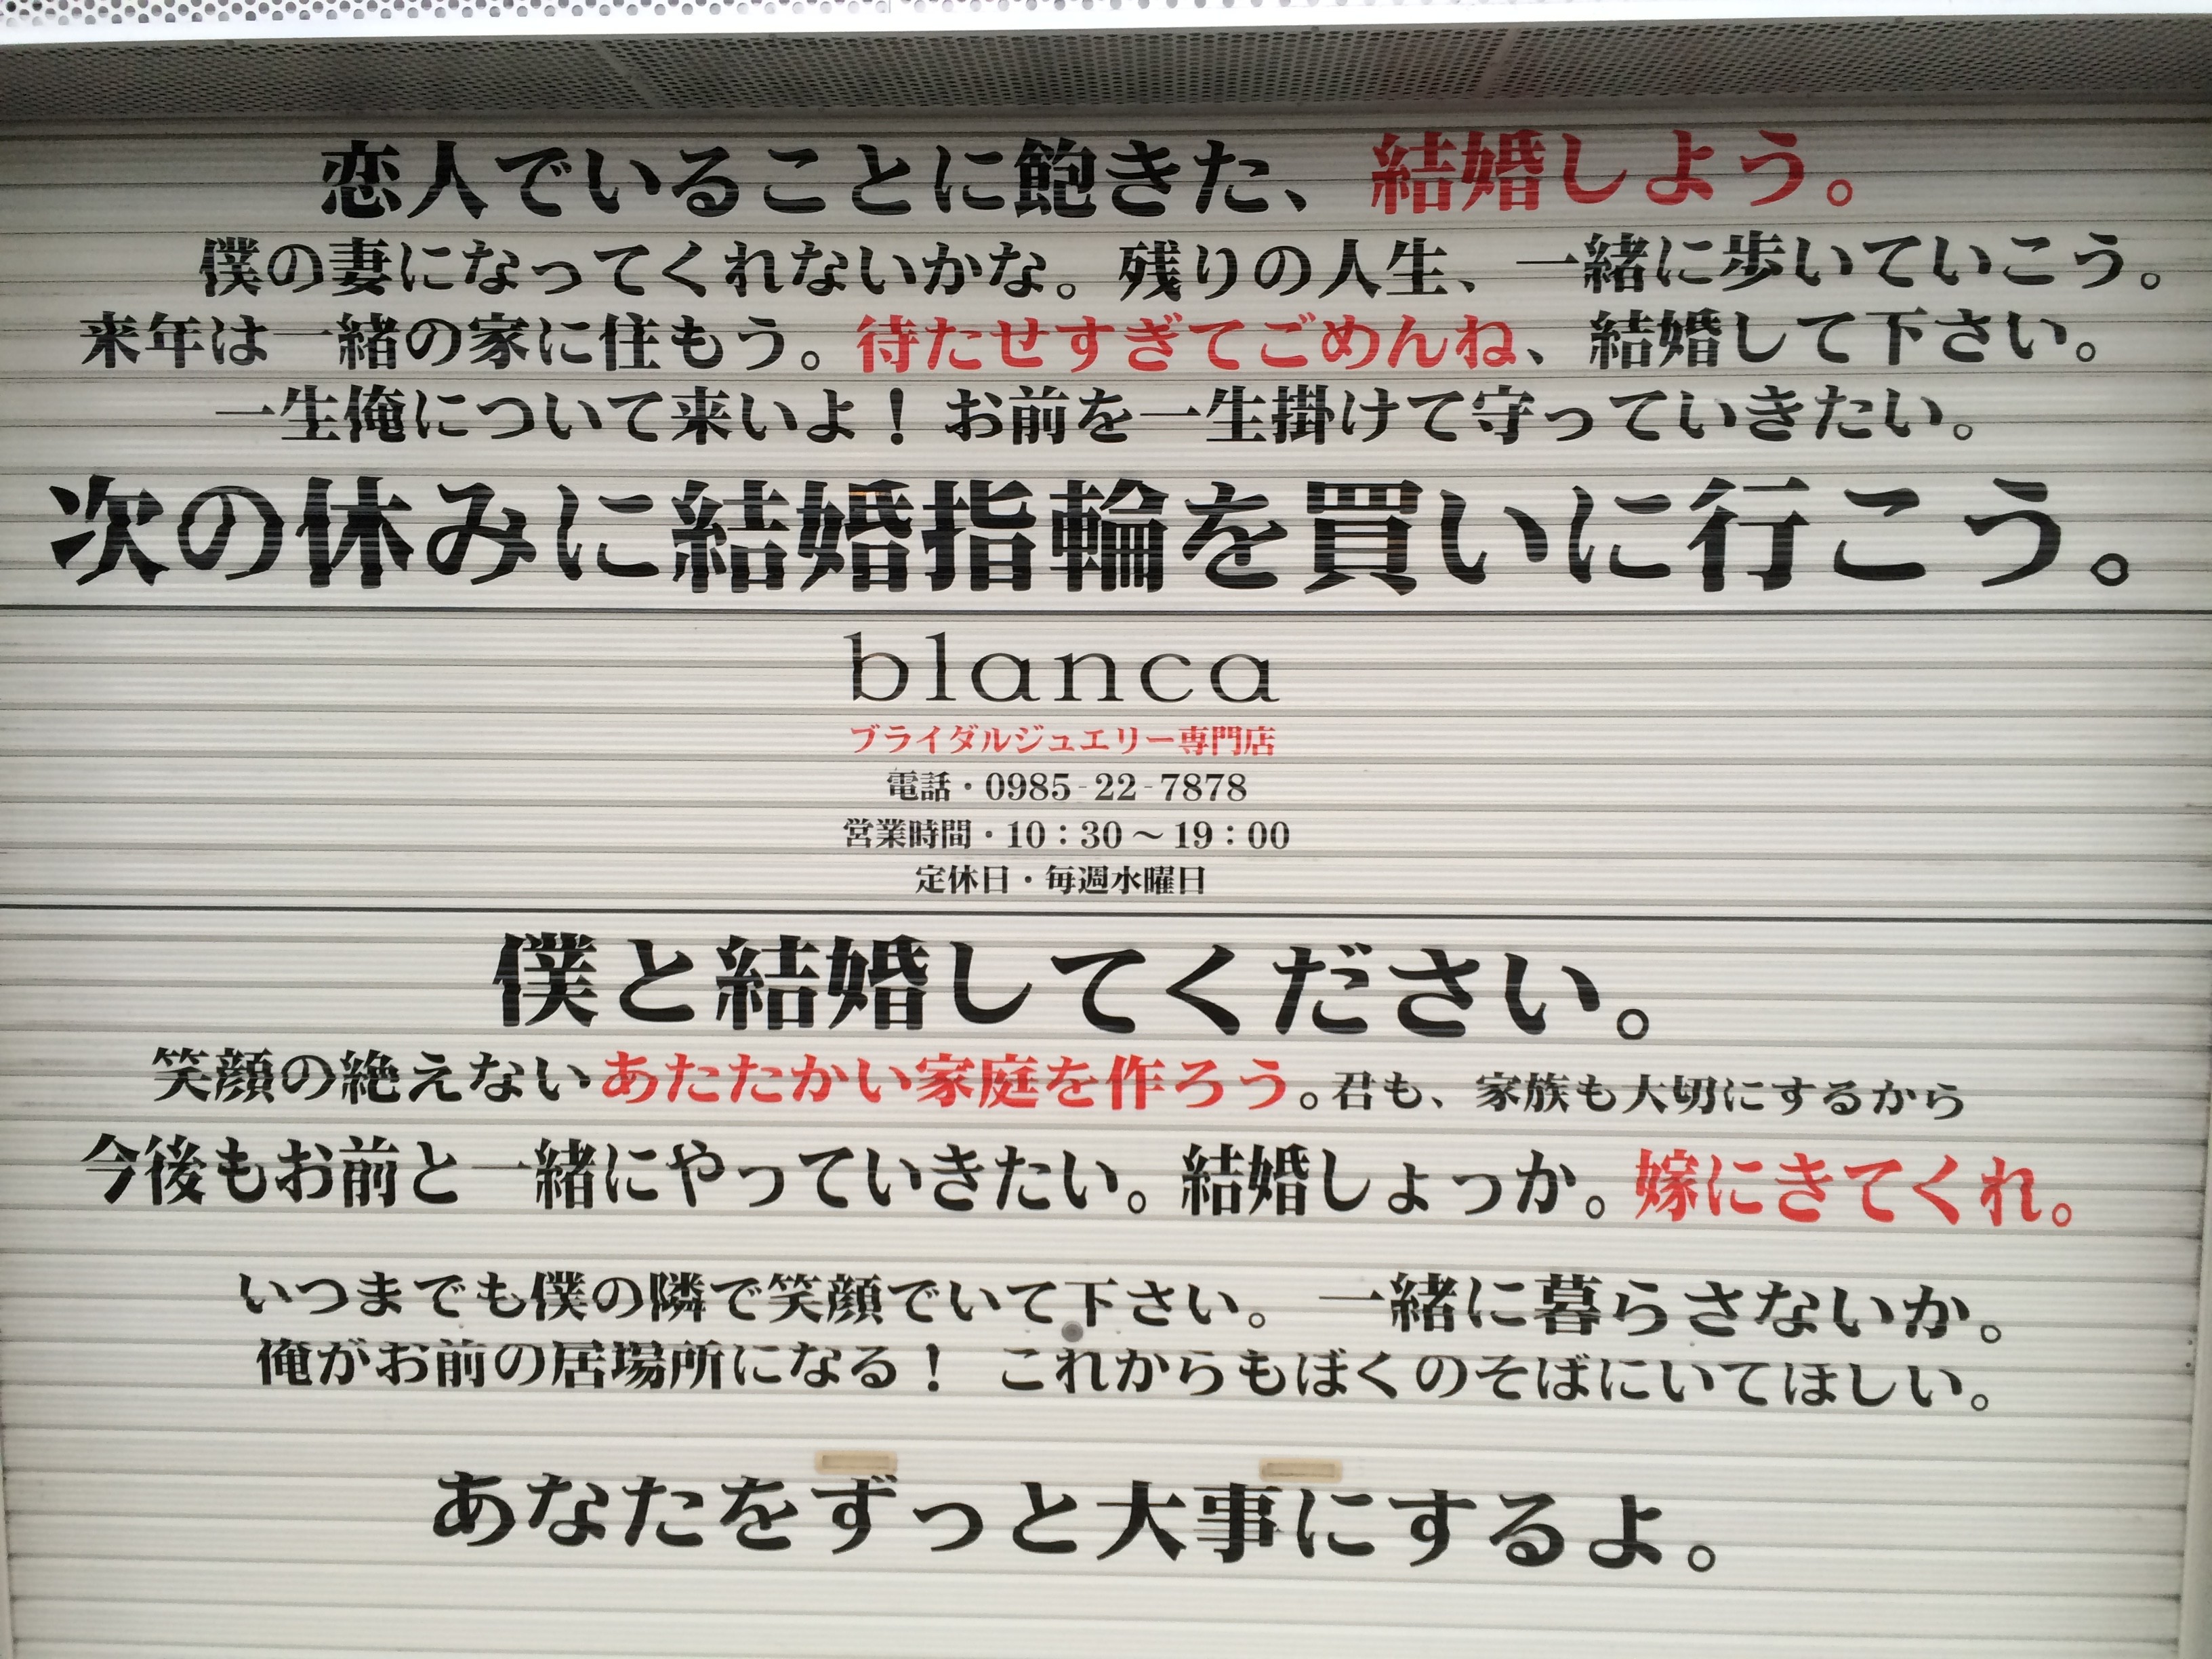 恋人でいることに飽きた、結婚しよう。
僕の妻になってくれないかな。残りの人生、一緒に歩いていこう。
来年は一緒の家に住もう。待たせすぎてごめんね、結婚して下さい。
一生俺について来いよ！お前を一生掛けて守っていきたい。
次の休みに結婚指輪を買いに行こう。
blanca
ブライダルジュエリー専門店
電話・0985-22-7878
営業時間・10：30～19：00
定休日・毎週水曜日
僕と結婚してください。
笑顔の絶えないあたたかい家庭を作ろう。君も、家族も大切にするから
今後もお前と一緒にやっていきたい。結婚しょっか。嫁にきてくれ。
いつまでも僕の隣で笑顔でいて下さい。一緒に暮らさないか。
俺がお前の居場所になる！これからもぼくのそばにいてほしい。
あなたをずっと大事にするよ。